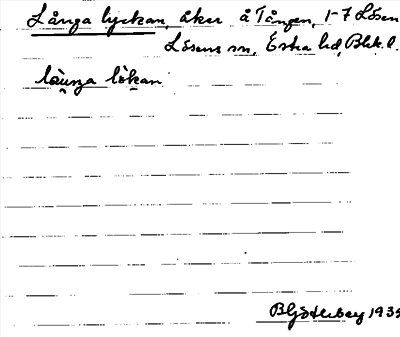 Långa lyckan, åker å Tången, 1-7 Lösen
Lösens sn, Östra hd, Blek. l.
làunga lòkan
B Göterberg 1935